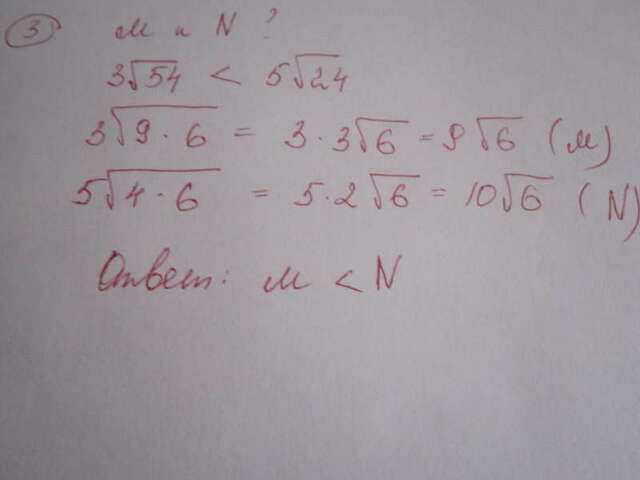 3 М и N ?
3√54 < 5√24
3√9·6 = 3·3√6 = 9√6 (м)
5√4·6 = 5·2√6 = 10√6 (N)
Ответ: м < N